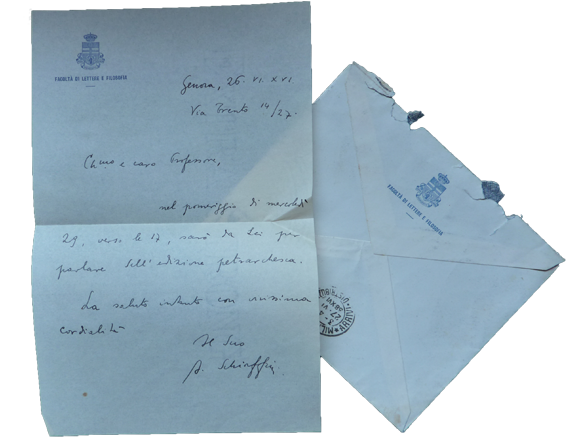 FACOLTÀ DI LETTERE E FILOSOFIA
Genova, 26. VI. XVI
Via Trento 14/27.
Ch.mo e caro Professore,
nel pomeriggio di mercoledì
29, verso le 17, sarò da Lei per
parlare dell'edizione petrarchesca.
La saluto intanto con vivissima
cordialità
Il Suo
A. Schiaffini
FACOLTÀ DI LETTERE E FILOSOFIA